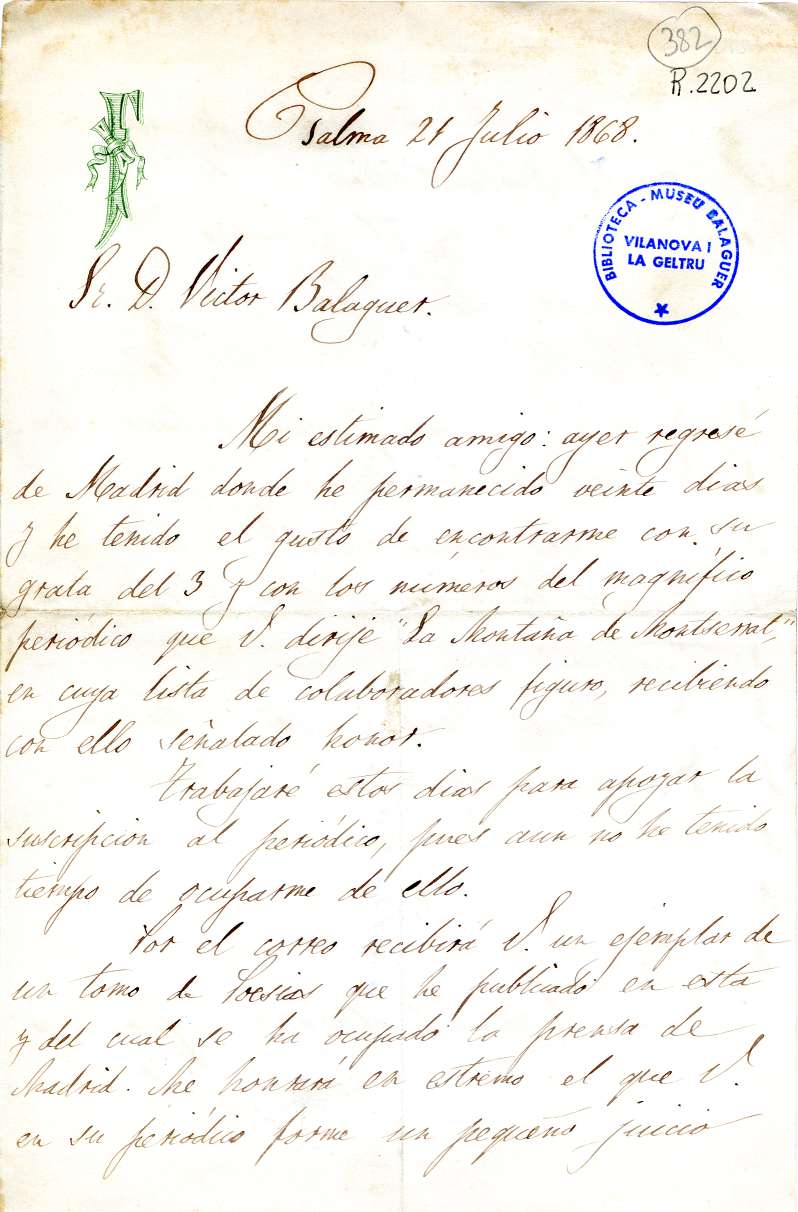 382
R.2202
Palma 21 Julio 1868.
BIBLIOTECA - MUSEU BALAGUER
VILANOVA I
LA GELTRU
Sr. D. Victor Balaguer.
Mi estimado amigo: ayer regresé
de Madrid donde he permanecido veinte dias
y he tenido el gusto de encontrarme con su
grata del 3 y con los números del magnífico
periódico que V. dirije "La Montaña de Montserrat,"
en cuya lista de colaboradores figuro, recibiendo
con ello señalado honor.
Trabajaré estos dias para apoyar la
suscripcion al periódico, pues aun no he tenido
tiempo de ocuparme de ello.
Por el correo recibirá V. un ejemplar de
un tomo de Poesias que he publicado en esta
y del cual se ha ocupado la prensa de
Madrid. Me honrará en estremo el que V.
en su periódico forme un pequeño juicio